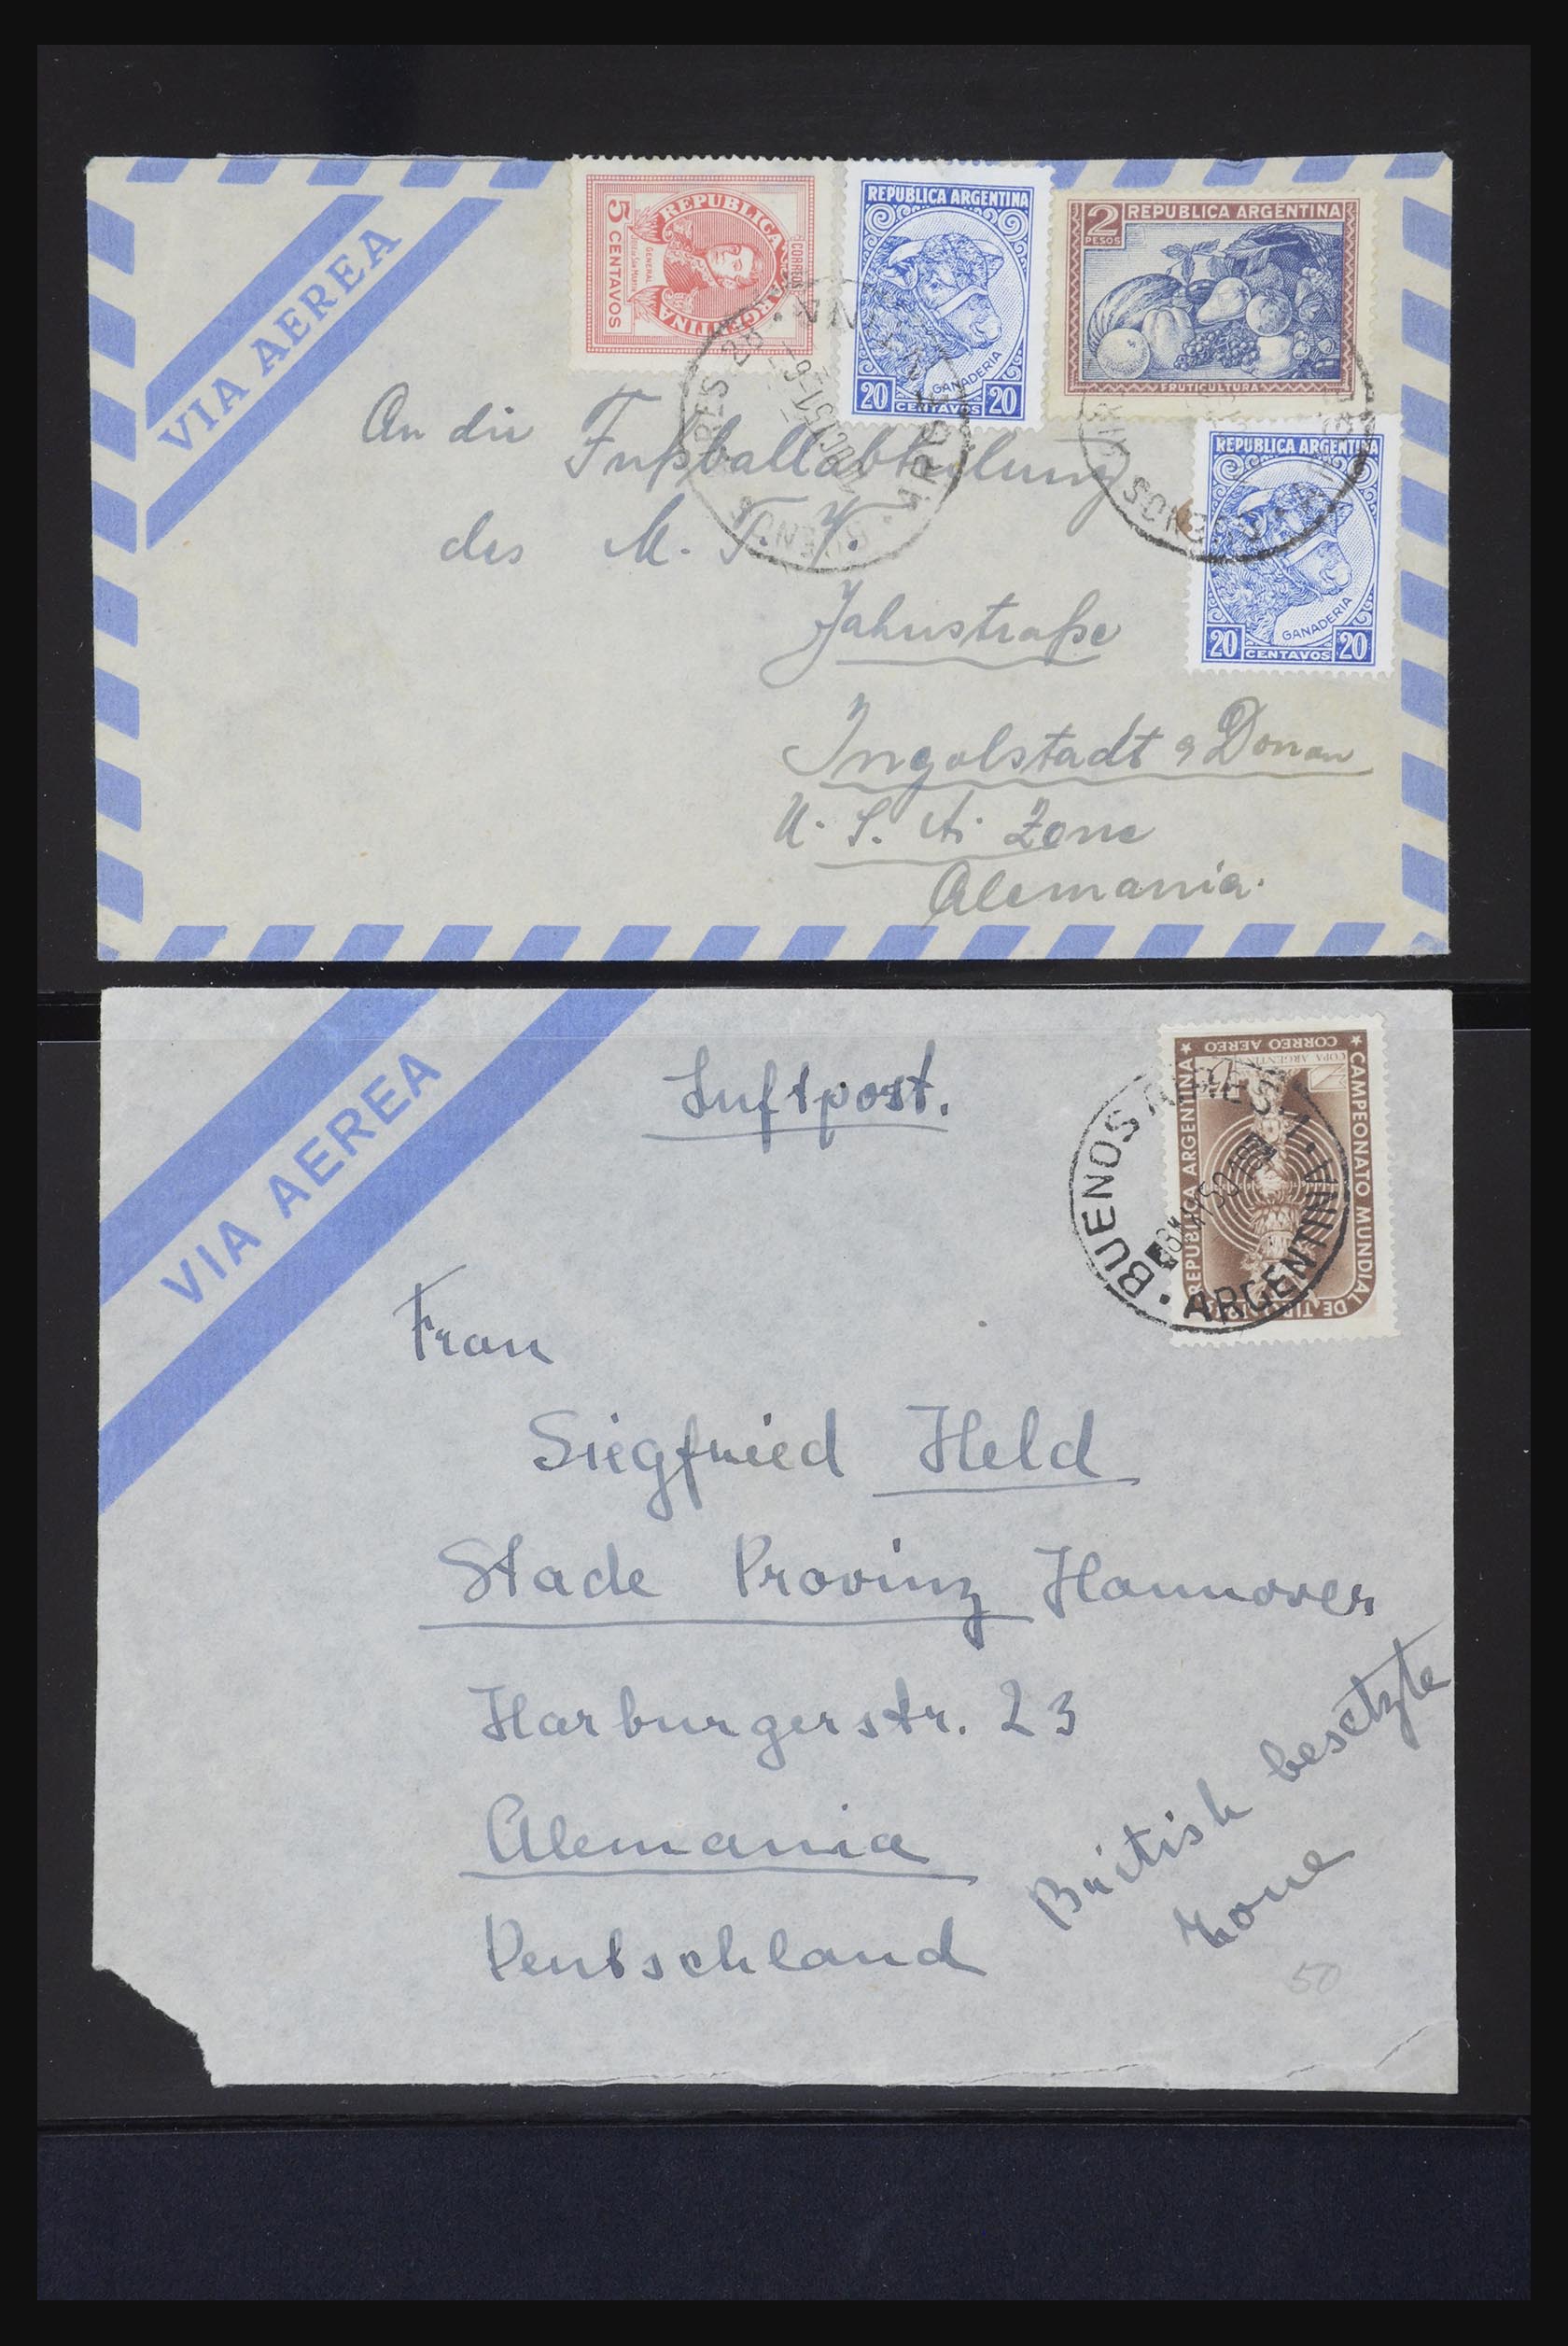 VIA AEREA
5 CENTAVOS
REPUBLICA ARGENTINA
CORREOS
GENERAL
José de San Martín
REPUBLICA ARGENTINA
GANADERIA
20 CENTAVOS 20
2 PESOS
REPUBLICA ARGENTINA
FRUTICULTURA
REPUBLICA ARGENTINA
GANADERIA
20 CENTAVOS 20
BUENOS
An die Fußballabteilung
des M. T. V.
Jahnstraße
Ingolstadt a Donau
U. S. A. Zone
Alemania.
VIA AEREA
Luftpost.
CORREO AEREO
COPA ARGENTINA
REPUBLICA ARGENTINA
CAMPEONATO MUNDIAL DE TIRO
BUENOS AIRES
ARGENTINA
Frau
Siegfried Held
Stade Provinz Hannover
Harburgerstr. 23
Alemania
Deutschland
British besetzte
Zone
50